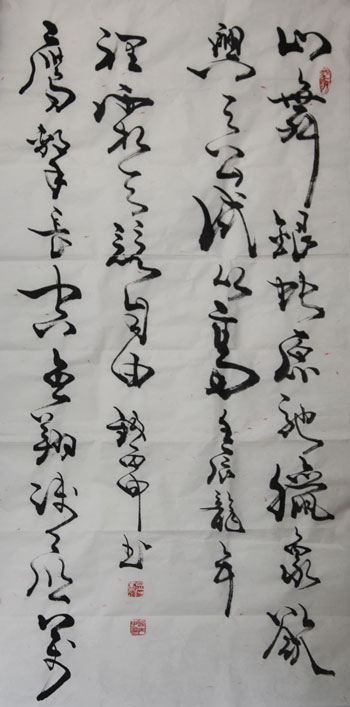 山舞銀蛇原馳蠟象欲
與天公試比高壬辰龍年
鷹擊長空魚翔淺底萬
類霜天競自由 書